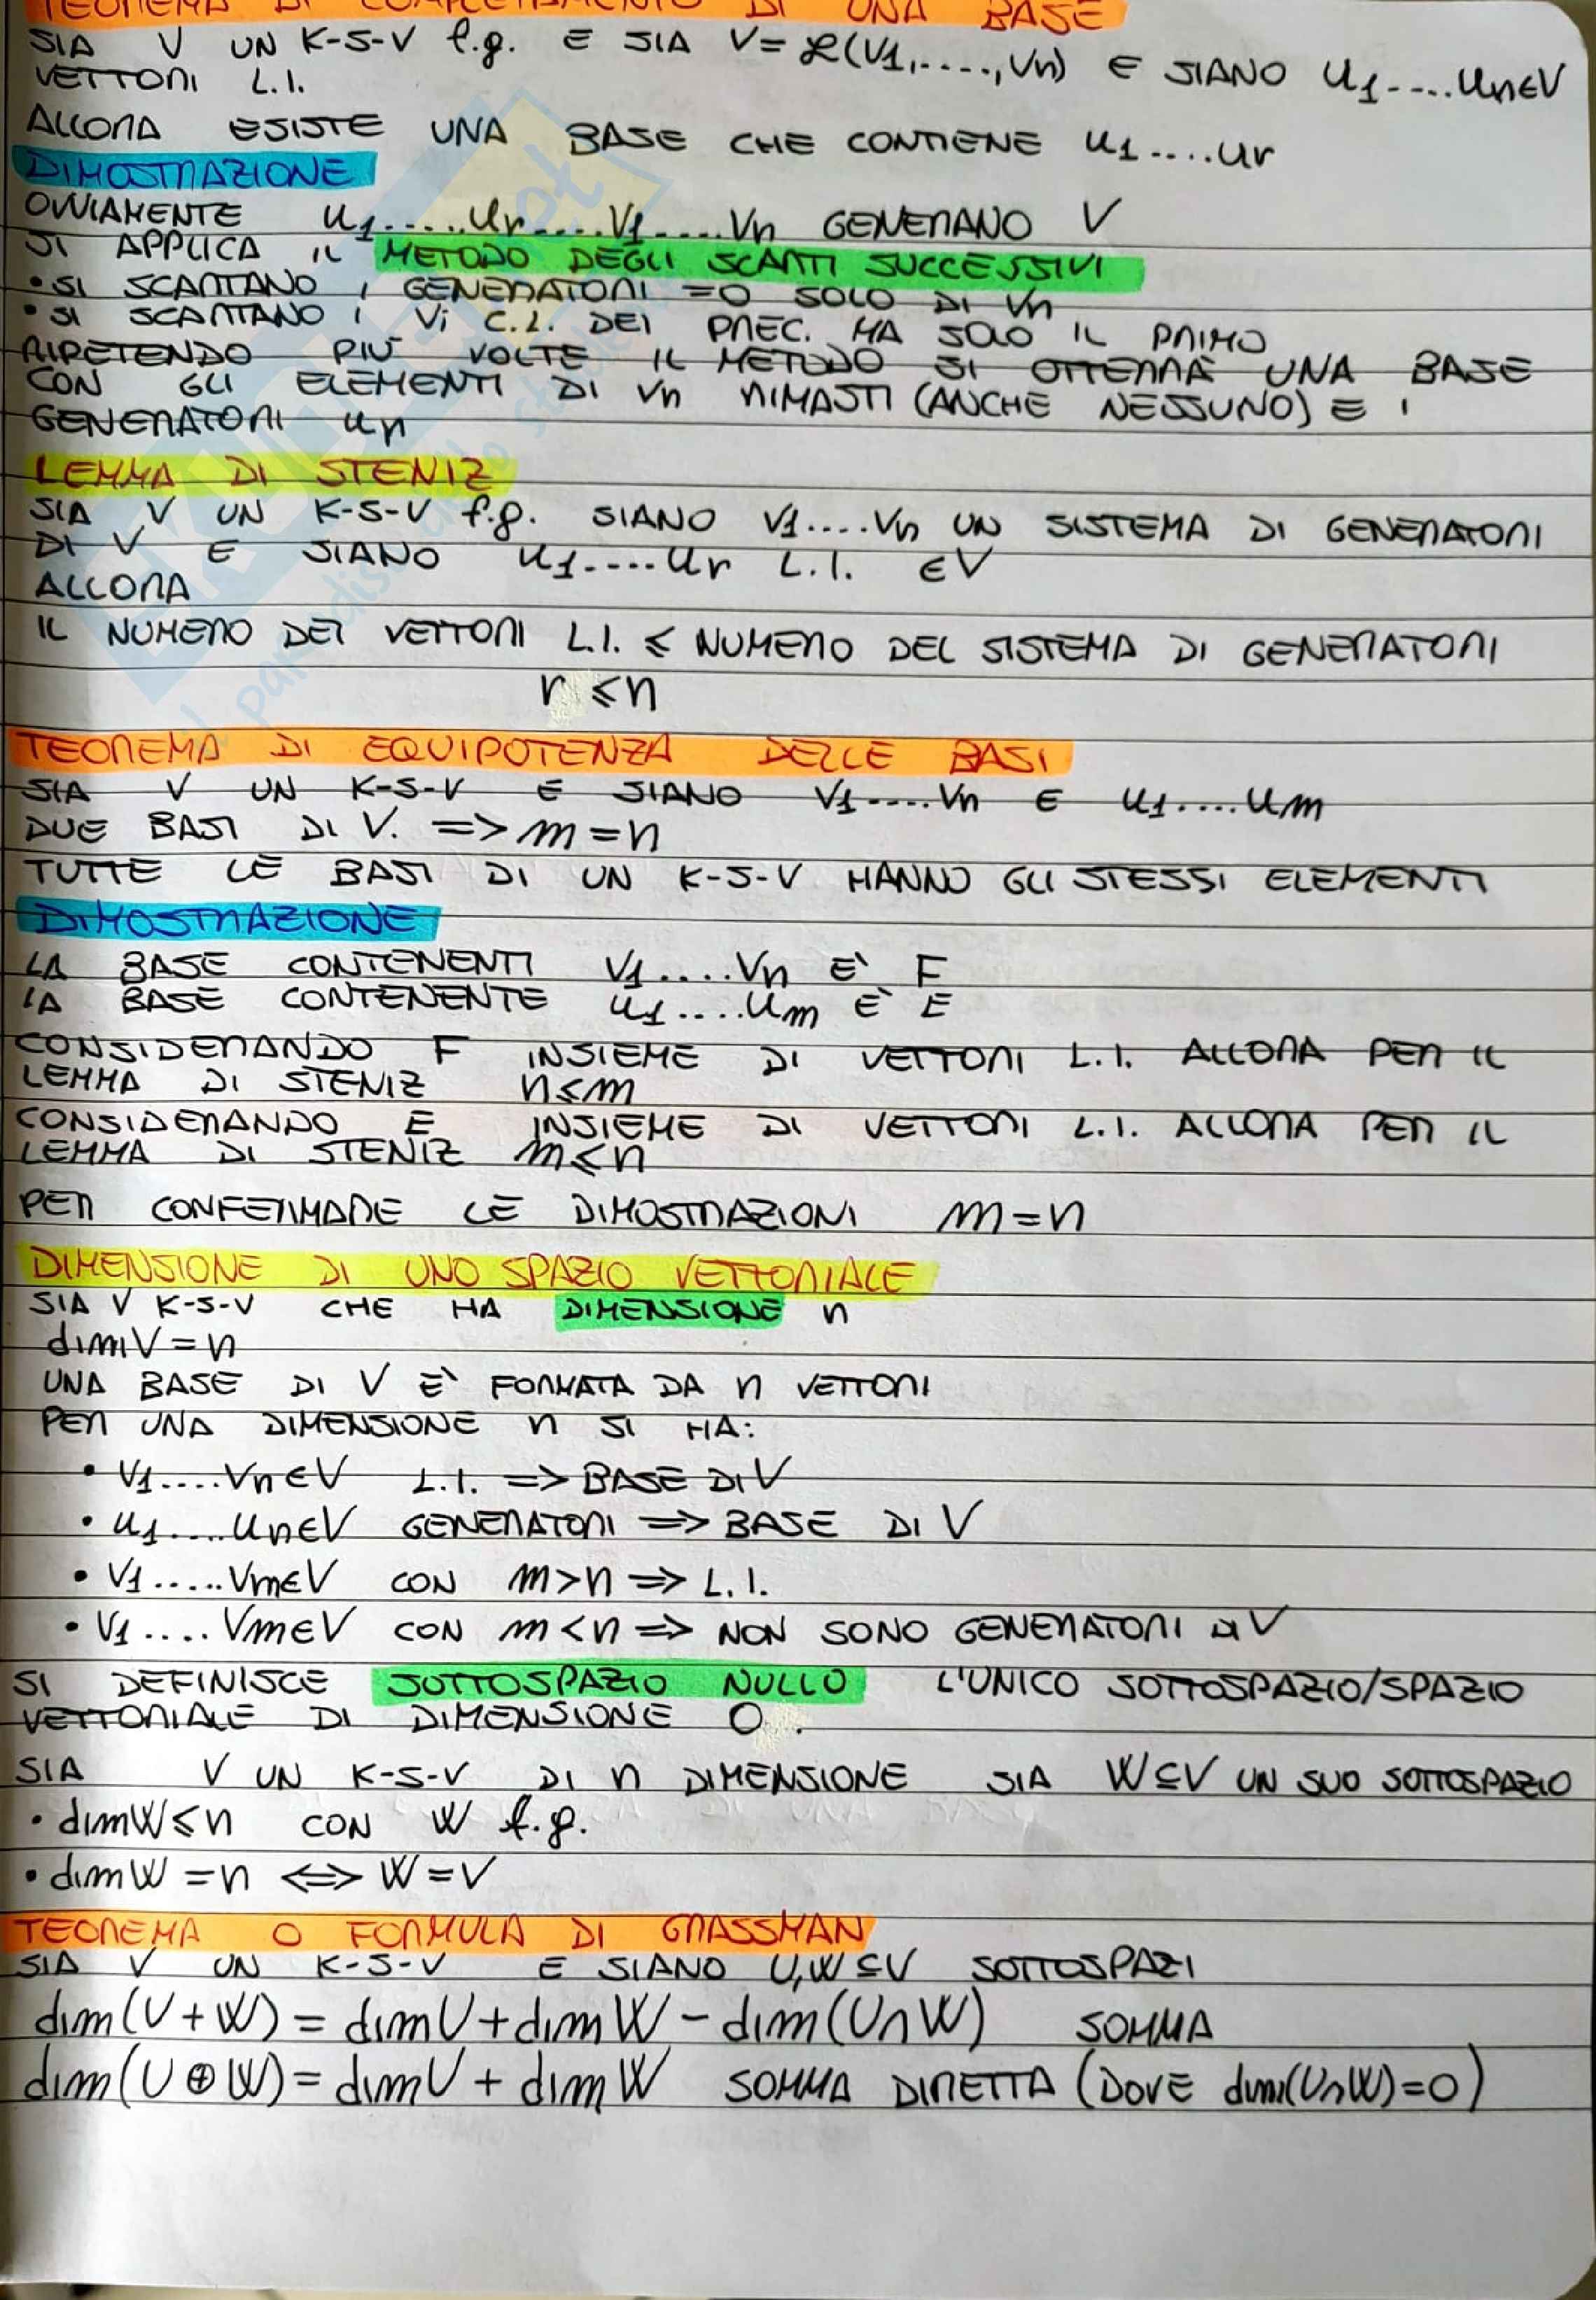 TEOREMA DI COMPLETAMENTO DI UNA BASE
SIA V UN K-S-V f.g. E SIA V=ℒ(V1,....,Vn) E SIANO U1....Un∈V
VETTORI L.I.
ALLORA ESISTE UNA BASE CHE CONTIENE U1....Ur
DIMOSTRAZIONE
OVVIAMENTE U1.....Ur....V1....Vn GENERANO V
SI APPLICA IL METODO DEGLI SCARTI SUCCESSIVI
•SI SCARTANO I GENERATORI =0 SOLO DI Vn
•SI SCARTANO I Vi C.L. DEI PREC. MA SOLO IL PRIMO
RIPETENDO PIÙ VOLTE IL METODO SI OTTERRÀ UNA BASE
CON GLI ELEMENTI DI Vn RIMASTI (ANCHE NESSUNO) E I
GENERATORI Un
LEMMA DI STENIZ
SIA V UN K-S-V f.g. SIANO V1....Vn UN SISTEMA DI GENERATORI
DI V E SIANO U1....Ur L.I. ∈V
ALLORA
IL NUMERO DEI VETTORI L.I. ≤ NUMERO DEL SISTEMA DI GENERATORI
r ≤n
TEOREMA DI EQUIPOTENZA DELLE BASI
SIA V UN K-S-V E SIANO V1....Vn E U1....Um
DUE BASI DI V. => m=n
TUTTE LE BASI DI UN K-S-V HANNO GLI STESSI ELEMENTI
DIMOSTRAZIONE
LA BASE CONTENENTI V1....Vn E' F
LA BASE CONTENENTE U1....Um E' E
CONSIDERANDO F INSIEME DI VETTORI L.I. ALLORA PER IL
LEMMA DI STENIZ n≤m
CONSIDERANDO E INSIEME DI VETTORI L.I. ALLORA PER IL
LEMMA DI STENIZ m≤n
PER CONFERMARE LE DIMOSTRAZIONI m=n
DIMENSIONE DI UNO SPAZIO VETTORIALE
SIA V K-S-V CHE HA DIMENSIONE n
dimV=n
UNA BASE DI V E' FORMATA DA n VETTORI
PER UNA DIMENSIONE n SI HA:
• V1....Vn∈V L.I. => BASE DI V
• U1....Un∈V GENERATORI => BASE DI V
• V1.....Vm∈V CON m>n => L.I.
• V1....Vm∈V CON m<n => NON SONO GENERATORI DI V
SI DEFINISCE SOTTOSPAZIO NULLO L'UNICO SOTTOSPAZIO/SPAZIO
VETTORIALE DI DIMENSIONE 0.
SIA V UN K-S-V DI n DIMENSIONE SIA W⊆V UN SUO SOTTOSPAZIO
• dimW≤n CON W f.g.
• dimW=n <=> W=V
TEOREMA O FORMULA DI GRASSMAN
SIA V UN K-S-V E SIANO U,W⊆V SOTTOSPAZI
dim(U+W)=dimU+dimW-dim(U∩W) SOMMA
dim(U⊕W)=dimU+dimW SOMMA DIRETTA (DOVE dim(U∩W)=0)